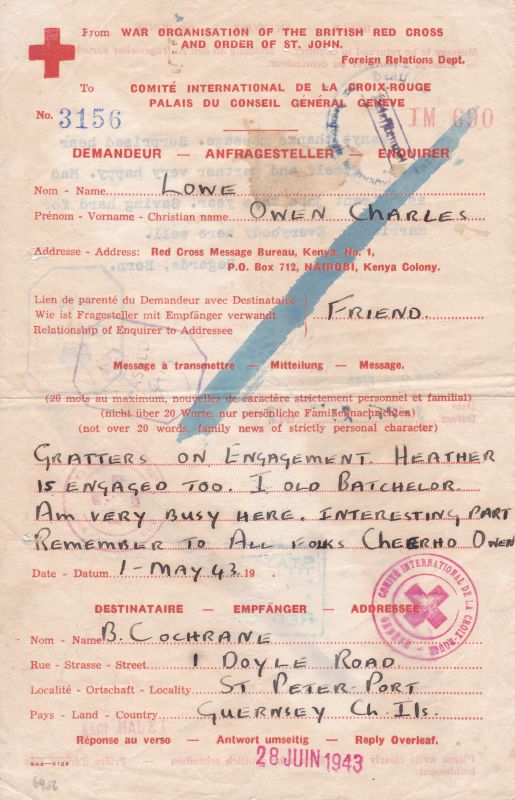 From WAR ORGANISATION OF THE BRITISH RED CROSS
AND ORDER OF ST. JOHN.
Foreign Relations Dept.
To COMITÉ INTERNATIONAL DE LA CROIX-ROUGE
PALAIS DU CONSEIL GÉNÉRAL GENÈVE
No. 3156
IM 690
DEMANDEUR — ANFRAGESTELLER — ENQUIRER
Nom - Name LOWE
Prénom - Vorname - Christian name OWEN CHARLES
Addresse - Address: Red Cross Message Bureau, Kenya, No. 1,
P.O. Box 712, NAIROBI, Kenya Colony.
Lien de parenté du Demandeur avec Destinataire
Wie ist Fragesteller mit Empfänger verwandt
Relationship of Enquirer to Addressee
FRIEND.
Message à transmettre — Mitteilung — Message.
(20 mots au maximum, nouvelles de caractère strictement personnel et familial)
(nicht über 20 Worte, nur persönliche Familiennachrichten)
(not over 20 words, family news of strictly personal character)
GRATTERS ON ENGAGEMENT. HEATHER
IS ENGAGED TOO. I OLD BATCHELOR.
AM VERY BUSY HERE. INTERESTING PART
REMEMBER TO ALL FOLKS CHEERHO OWEN
Date - Datum 1-MAY 43. 19
COMITÉ INTERNATIONAL DE LA CROIX-ROUGE - GENÈVE
DESTINATAIRE — EMPFÄNGER — ADDRESSEE
Nom - Name B. COCHRANE
Rue - Strasse - Street 1 DOYLE ROAD
Localité - Ortschaft - Locality ST PETER-PORT
Pays - Land - Country GUERNSEY CH. ILS.
Réponse au verso — Antwort umseitig — Reply Overleaf.
28 JUIN 1943